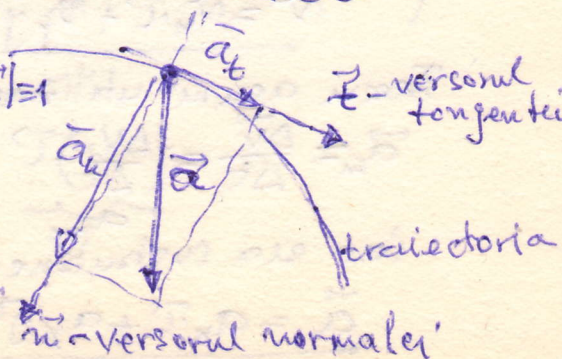 |≡1
a̅ₜ
t⃗ - versorul
tangentei
a̅ₙ
a⃗
traiectoria
n⃗ - versorul normalei